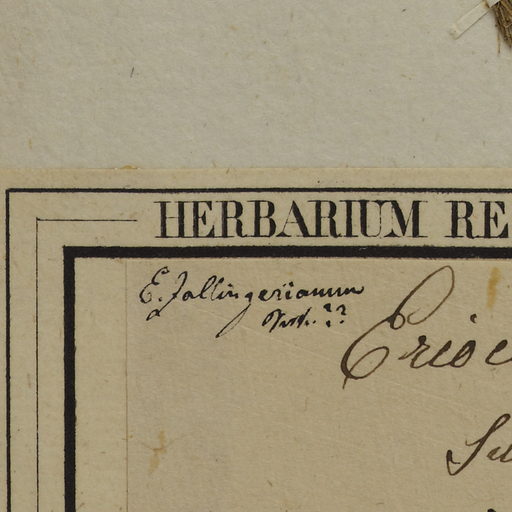 HERBARIUM RE
E. Zollingerianum
??
Erioc